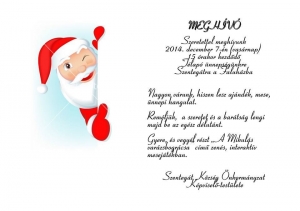 MEGHÍVÓ
Szeretettel meghívunk
2014. december 7-én (vasárnap)
15 órakor kezdődő
Télapó ünnepségünkre
Szentegátra a Faluházba
Nagyon várunk, hiszen lesz ajándék, mese,
ünnepi hangulat.
Reméljük, a szeretet és a barátság lengi
majd be az egész délutánt.
Gyere, és vegyél részt „A Mikulás
varázsbográcsa" című zenés, interaktív
mesejátékban.
Szentegát Község Önkormányzat
Képviselő-testülete